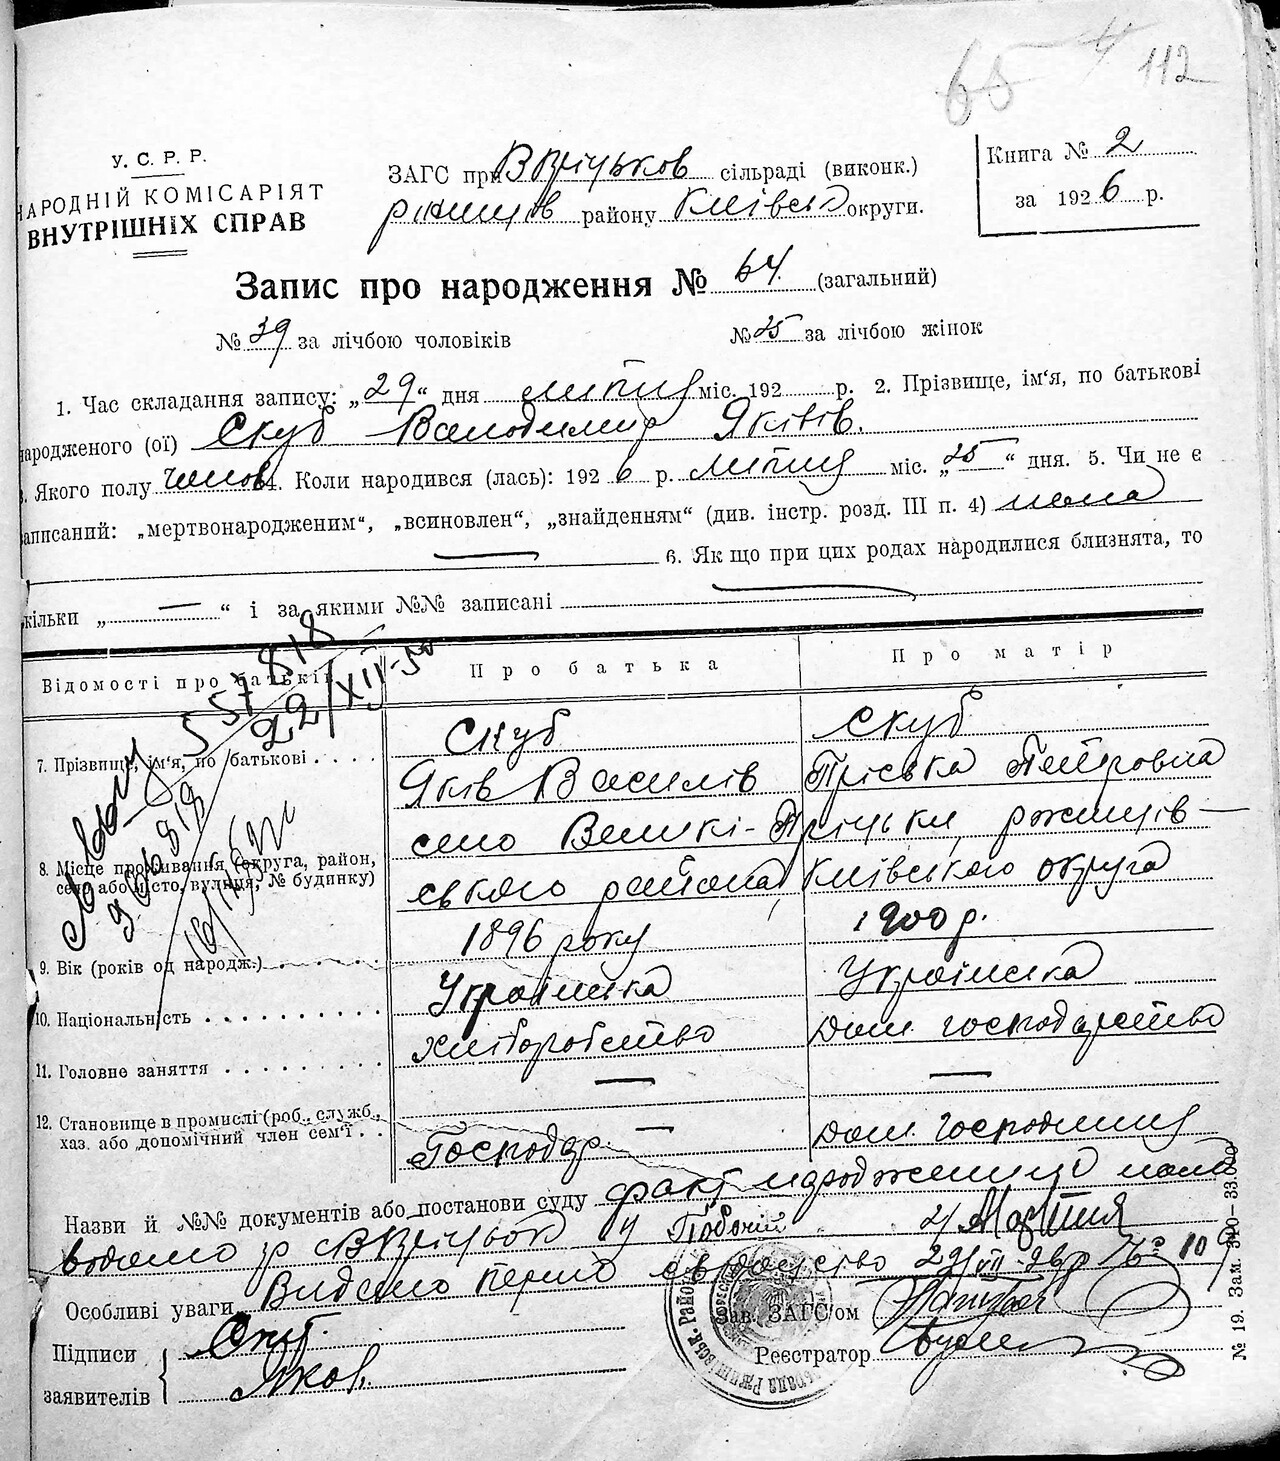 65 4 112
У. С. Р. Р.
НАРОДНІЙ КОМІСАРІЯТ
ВНУТРІШНІХ СПРАВ
ЗАГС при ВПріцьков сільраді (виконк.)
ржищів району Київськ округи.
Книга № 2
за 1926 р.
Запис про народження № 64. (загальний)
№ 39 за лічбою чоловіків № 25 за лічбою жінок
1. Час складання запису: „29“ дня липня міс. 192 р. 2. Прізвище, ім‘я, по батькові
народженого (ої) Скуб Володимир Яківів.
3. Якого полу чолов 4. Коли народився (лась): 1926 р. липня міс. „25“ дня. 5. Чи не є
записаний: „мертвонародженим“, „всиновлен“, „знайденням“ (див. інстр. розд. III п. 4) нема
— 6. Як що при цих родах народилися близнята, то
скільки „—“ і за якими №№ записані
Відомості про батьків Про батька Про матір
557818
22/XII-50
7. Прізвище, ім‘я, по батькові Скуб Скуб
Яків Василів Пріська Петровна
8. Місце проживання (округа, район, село або місто, вулиця, № будинку) село Великі-Пріцьки, ржищів-
ського района, Київського округа
9. Вік (років од народж.) 1896 року 1900 р.
10. Національність Українська Українська
11. Головне заняття хліборобство Дом. господарство
— —
12. Становище в промислі (роб., служб., хаз. або допомічний член сем‘ї Господар — Дом. господиня
Назви й №№ документів або постанови суду факт народження
водемо ВПріцьков у
Особливі уваги Видано перше свідоцтво 29/VII-26р № 109
Підписи заявителів Скуб.
Яков.
Зав. ЗАГС‘ом
Реєстратор
№ 19. Зам. 340—33.000